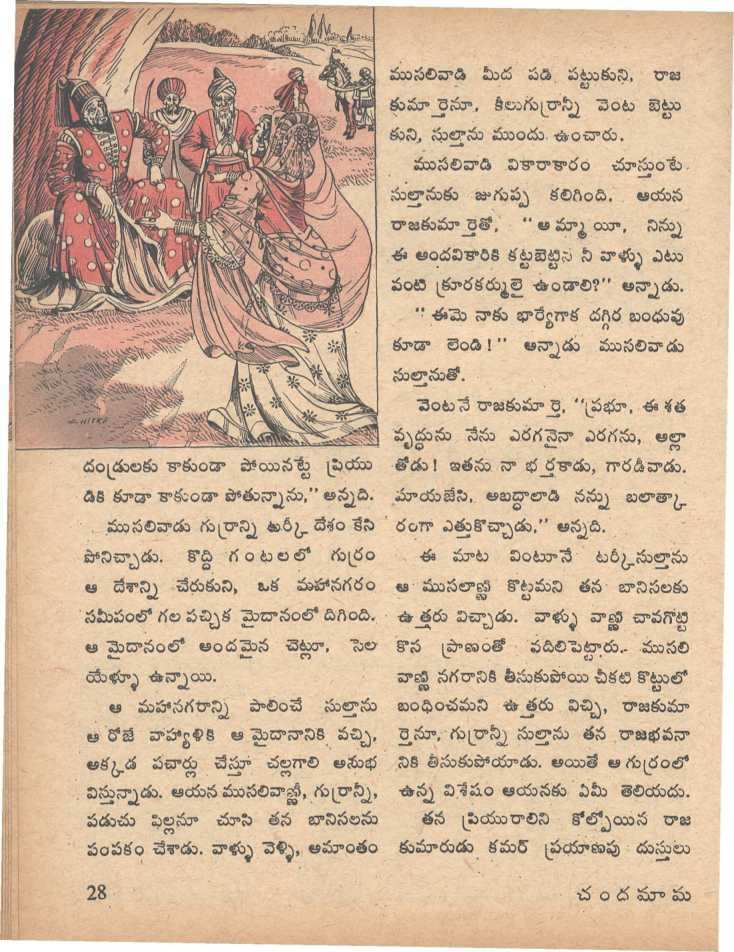 దండ్రులకు కాకుండా పోయినట్టే ప్రియు
డికి కూడా కాకుండా పోతున్నాను,’’ అన్నది.
ముసలివాడు గుర్రాన్ని టర్కీ దేశం కేసి
పోనిచ్చాడు. కొద్ది గంటలలో గుర్రం
ఆ దేశాన్ని చేరుకుని, ఒక మహానగరం
సమీపంలో గల పచ్చిక మైదానంలో దిగింది.
ఆ మైదానంలో అందమైన చెట్లూ, సెల
యేళ్ళూ ఉన్నాయి.
ఆ మహానగరాన్ని పాలించే సుల్తాను
ఆ రోజే వాహ్యాళికి ఆ మైదానానికి వచ్చి,
అక్కడ పచార్లు చేస్తూ చల్లగాలి అనుభ
విస్తున్నాడు. ఆయన ముసలివాణ్ణీ, గుర్రాన్నీ,
పడుచు పిల్లనూ చూసి తన బానిసలను
పంపకం చేశాడు. వాళ్ళు వెళ్ళి, అమాంతం
ముసలివాడి మీద పడి పట్టుకుని, రాజ
కుమార్తెనూ, కీలుగుర్రాన్నీ వెంట బెట్టు
కుని, సుల్తాను ముందు ఉంచారు.
ముసలివాడి వికారాకారం చూస్తుంటే
సుల్తానుకు జుగుప్స కలిగింది. ఆయన
రాజకుమార్తెతో, ‘‘అమ్మాయీ, నిన్ను
ఈ అందవికారికి కట్టబెట్టిన నీ వాళ్ళు ఎటు
వంటి క్రూరకర్ములై ఉండాలి?’’ అన్నాడు.
‘‘ఈమె నాకు భార్యేగాక దగ్గిర బంధువు
కూడా లెండి!’’ అన్నాడు ముసలివాడు
సుల్తానుతో.
వెంటనే రాజకుమార్తె, ‘‘ప్రభూ, ఈ శత
వృద్ధును నేను ఎరగనైనా ఎరగను, అల్లా
తోడు! ఇతను నా భర్తకాడు, గారడీవాడు.
మాయజేసి, అబద్ధాలాడి నన్ను బలాత్కా
రంగా ఎత్తుకొచ్చాడు,’’ అన్నది.
ఈ మాట వింటూనే టర్కీసుల్తాను
ఆ ముసలాణ్ణి కొట్టమని తన బానిసలకు
ఉత్తరు విచ్చాడు. వాళ్ళు వాణ్ణి చావగొట్టి
కొస ప్రాణంతో వదిలిపెట్టారు. ముసలి
వాణ్ణి నగరానికి తీసుకుపోయి చీకటి కొట్టులో
బంధించమని ఉత్తరు విచ్చి, రాజకుమా
ర్తెనూ, గుర్రాన్నీ సుల్తాను తన రాజభవనా
నికి తీసుకుపోయాడు. అయితే ఆ గుర్రంలో
ఉన్న విశేషం ఆయనకు ఏమీ తెలియదు.
తన ప్రియురాలిని కోల్పోయిన రాజ
కుమారుడు కమర్ ప్రయాణపు దుస్తులు
28
చందమామ